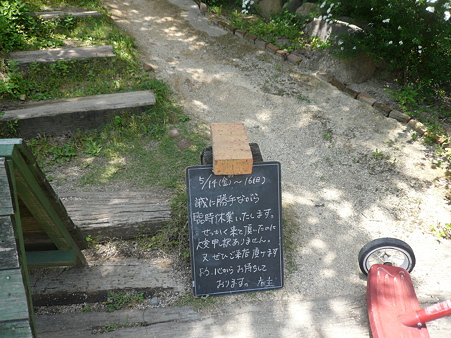 5/14(金)〜16(日)
誠に勝手ながら
臨時休業いたします。
せっかく来て頂いたのに
大変申し訳ありません。
又、ぜひご来店頂けます
よう、心からお待ちして
おります。 店主